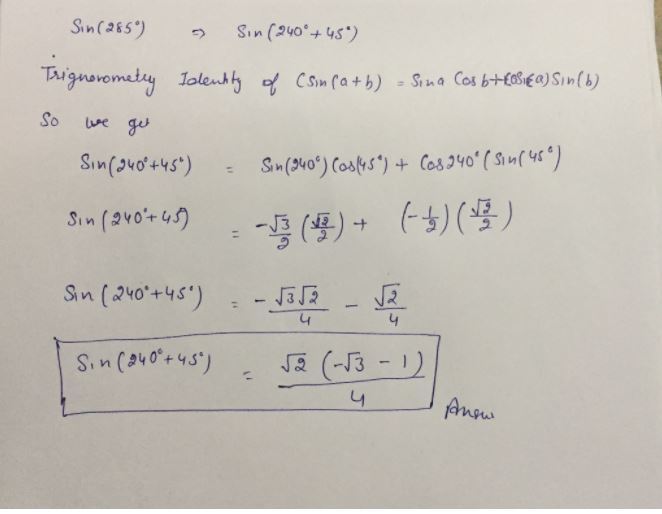 Sin(285°) ⇒ Sin(240°+45°)
Trignorometry Identity of (Sin(a+b) = Sina Cosb+Cos(a)Sin(b)
So we get
Sin(240°+45°) = Sin(240°)Cos(45°) + Cos240°(Sin(45°)
Sin(240°+45) = -√3/2 (√2/2) + (-1/2)(√2/2)
Sin(240°+45°) = - √3√2/4 - √2/4
Sin(240°+45°) = √2(-√3-1)/4